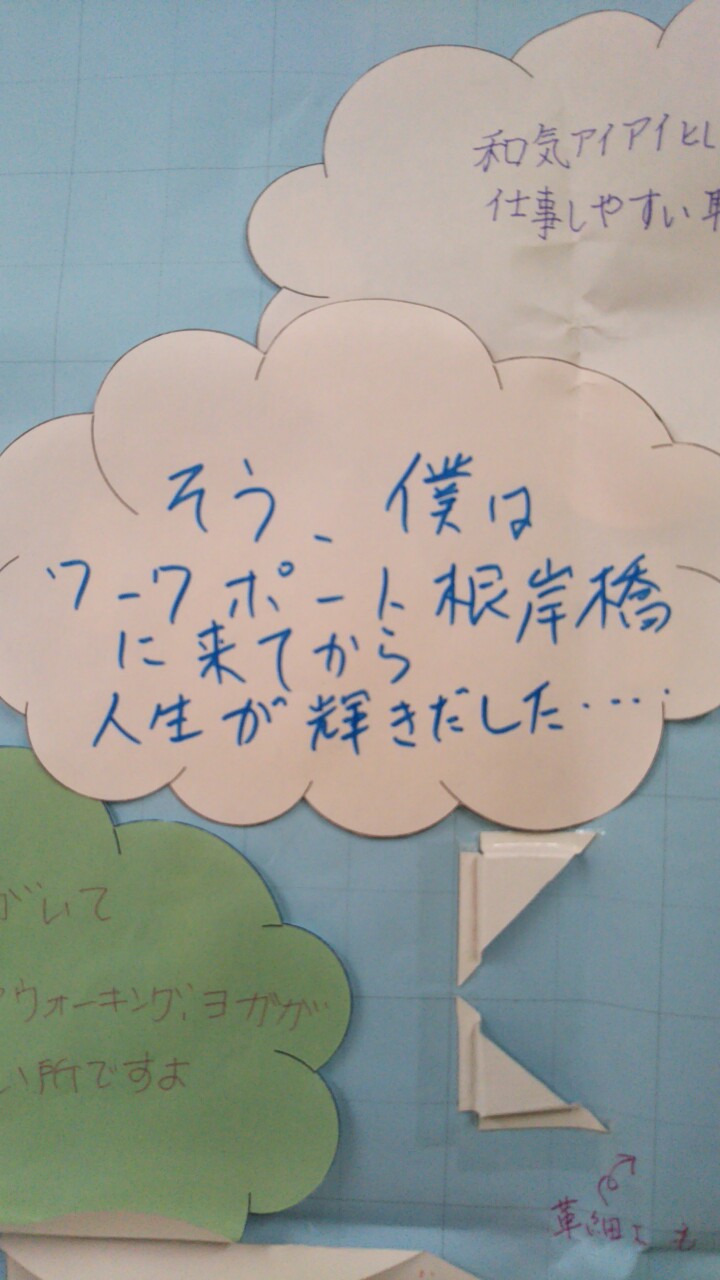 和気アイアイとし
仕事しやすい
そう、僕は
ワークポート根岸橋
に来てから
人生が輝きだした‥‥
がいて
ウォーキング、ヨガが
い所ですよ
革細工も